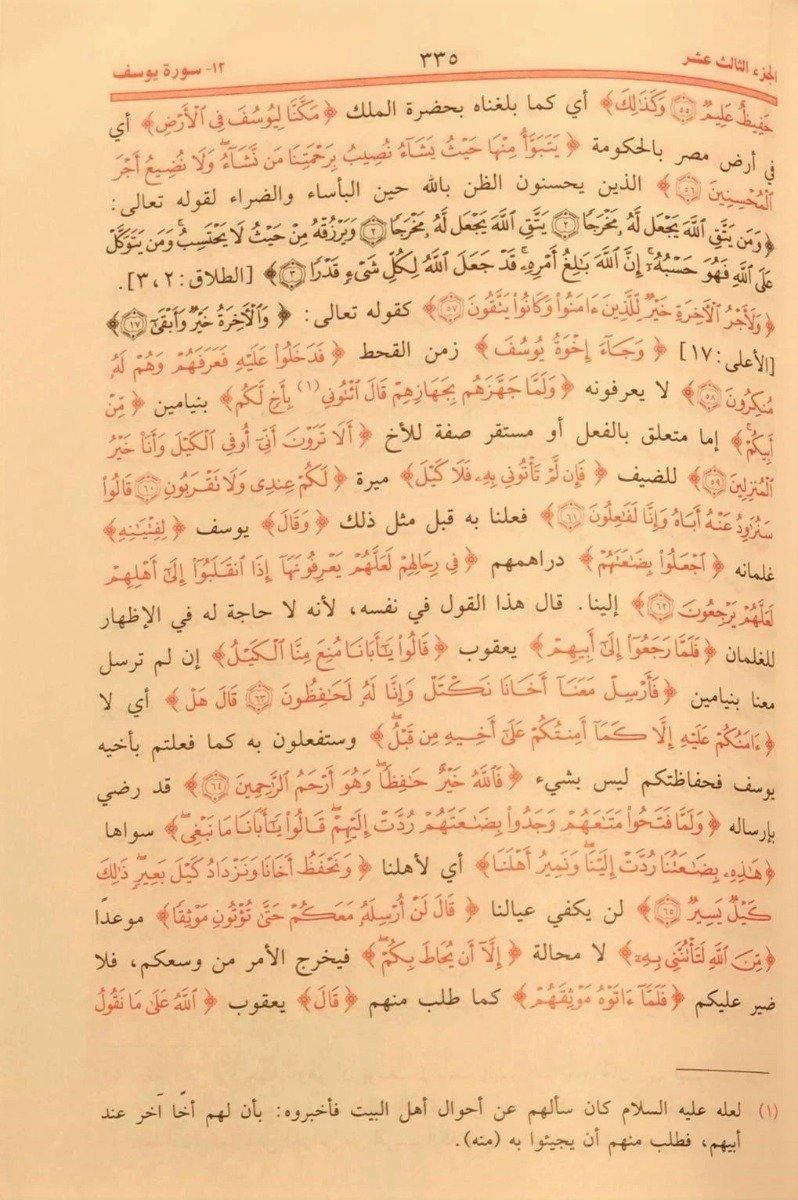 الجزء الثالث عشر ٣٣٥ ١٢- سورة يوسف
حَفِيظٌ عَلِيمٌ ﴿٥٥﴾ وَكَذَٰلِكَ﴾ أي كما بلغناه بحضرة الملك ﴿مَكَّنَّا لِيُوسُفَ فِي الْأَرْضِ﴾ أي
في أرض مصر بالحكومة ﴿يَتَبَوَّأُ مِنْهَا حَيْثُ يَشَاءُ نُصِيبُ بِرَحْمَتِنَا مَن نَّشَاءُ وَلَا نُضِيعُ أَجْرَ
الْمُحْسِنِينَ ﴿٥٦﴾﴾ الذين يحسنون الظن بالله حين البأساء والضراء لقوله تعالى:
﴿وَمَن يَتَّقِ اللَّهَ يَجْعَل لَّهُ مَخْرَجًا ﴿٢﴾ يَتَّقِ اللَّهَ يَجْعَل لَّهُ مَخْرَجًا ﴿٢﴾ وَيَرْزُقْهُ مِنْ حَيْثُ لَا يَحْتَسِبُ وَمَن يَتَوَكَّلْ
عَلَى اللَّهِ فَهُوَ حَسْبُهُ إِنَّ اللَّهَ بَالِغُ أَمْرِهِ قَدْ جَعَلَ اللَّهُ لِكُلِّ شَيْءٍ قَدْرًا ﴿٣﴾﴾ [الطلاق: ٢، ٣].
﴿وَلَأَجْرُ الْآخِرَةِ خَيْرٌ لِّلَّذِينَ ءَامَنُوا وَكَانُوا يَتَّقُونَ ﴿٥٧﴾﴾ كقوله تعالى: ﴿وَالْآخِرَةُ خَيْرٌ وَأَبْقَىٰ ﴿١٧﴾﴾
[الأعلى: ١٧] ﴿وَجَاءَ إِخْوَةُ يُوسُفَ﴾ زمن القحط ﴿فَدَخَلُوا عَلَيْهِ فَعَرَفَهُمْ وَهُمْ لَهُ
مُنكِرُونَ ﴿٥٨﴾﴾ لا يعرفونه ﴿وَلَمَّا جَهَّزَهُم بِجَهَازِهِمْ قَالَ ائْتُونِي (١) بِأَخٍ لَّكُم﴾ بنيامين ﴿مِّنْ
أَبِيكُمْ﴾ إما متعلق بالفعل أو مستقر صفة للأخ ﴿أَلَا تَرَوْنَ أَنِّي أُوفِي الْكَيْلَ وَأَنَا خَيْرُ
الْمُنزِلِينَ ﴿٥٩﴾﴾ للضيف ﴿فَإِن لَّمْ تَأْتُونِي بِهِ فَلَا كَيْلَ﴾ ميرة ﴿لَكُمْ عِندِي وَلَا تَقْرَبُونِ ﴿٦٠﴾ قَالُوا
سَنُرَاوِدُ عَنْهُ أَبَاهُ وَإِنَّا لَفَاعِلُونَ ﴿٦١﴾﴾ فعلنا به قبل مثل ذلك ﴿وَقَالَ﴾ يوسف ﴿لِفِتْيَانِهِ﴾
غلمانه ﴿اجْعَلُوا بِضَاعَتَهُمْ﴾ دراهمهم ﴿فِي رِحَالِهِمْ لَعَلَّهُمْ يَعْرِفُونَهَا إِذَا انقَلَبُوا إِلَىٰ أَهْلِهِمْ
لَعَلَّهُمْ يَرْجِعُونَ ﴿٦٢﴾﴾ إلينا. قال هذا القول في نفسه، لأنه لا حاجة له في الإظهار
للغلمان ﴿فَلَمَّا رَجَعُوا إِلَىٰ أَبِيهِمْ﴾ يعقوب ﴿قَالُوا يَا أَبَانَا مُنِعَ مِنَّا الْكَيْلُ﴾ إن لم ترسل
معنا بنيامين ﴿فَأَرْسِلْ مَعَنَا أَخَانَا نَكْتَلْ وَإِنَّا لَهُ لَحَافِظُونَ ﴿٦٣﴾ قَالَ هَلْ﴾ أي لا
﴿ءَامَنُكُمْ عَلَيْهِ إِلَّا كَمَا أَمِنتُكُمْ عَلَىٰ أَخِيهِ مِن قَبْلُ﴾ وستفعلون به كما فعلتم بأخيه
يوسف فحفاظتكم ليس بشيء ﴿فَاللَّهُ خَيْرٌ حَافِظًا وَهُوَ أَرْحَمُ الرَّاحِمِينَ ﴿٦٤﴾﴾ قد رضي
بإرساله ﴿وَلَمَّا فَتَحُوا مَتَاعَهُمْ وَجَدُوا بِضَاعَتَهُمْ رُدَّتْ إِلَيْهِمْ قَالُوا يَا أَبَانَا مَا نَبْغِي﴾ سواها
﴿هَٰذِهِ بِضَاعَتُنَا رُدَّتْ إِلَيْنَا وَنَمِيرُ أَهْلَنَا﴾ أي لأهلنا ﴿وَنَحْفَظُ أَخَانَا وَنَزْدَادُ كَيْلَ بَعِيرٍ ذَٰلِكَ
كَيْلٌ يَسِيرٌ ﴿٦٥﴾﴾ لن يكفي عيالنا ﴿قَالَ لَنْ أُرْسِلَهُ مَعَكُمْ حَتَّىٰ تُؤْتُونِ مَوْثِقًا﴾ موعدًا
﴿مِّنَ اللَّهِ لَتَأْتُنَّنِي بِهِ﴾ لا محالة ﴿إِلَّا أَن يُحَاطَ بِكُمْ﴾ فيخرج الأمر من وسعكم، فلا
ضير عليكم ﴿فَلَمَّا ءَاتَوْهُ مَوْثِقَهُمْ﴾ كما طلب منهم ﴿قَالَ﴾ يعقوب ﴿اللَّهُ عَلَىٰ مَا نَقُولُ
(١) لعله عليه السلام كان سألهم عن أحوال أهل البيت فأخبروه: بأن لهم أخًا آخر عند
أبيهم، فطلب منهم أن يجيئوا به (منه).